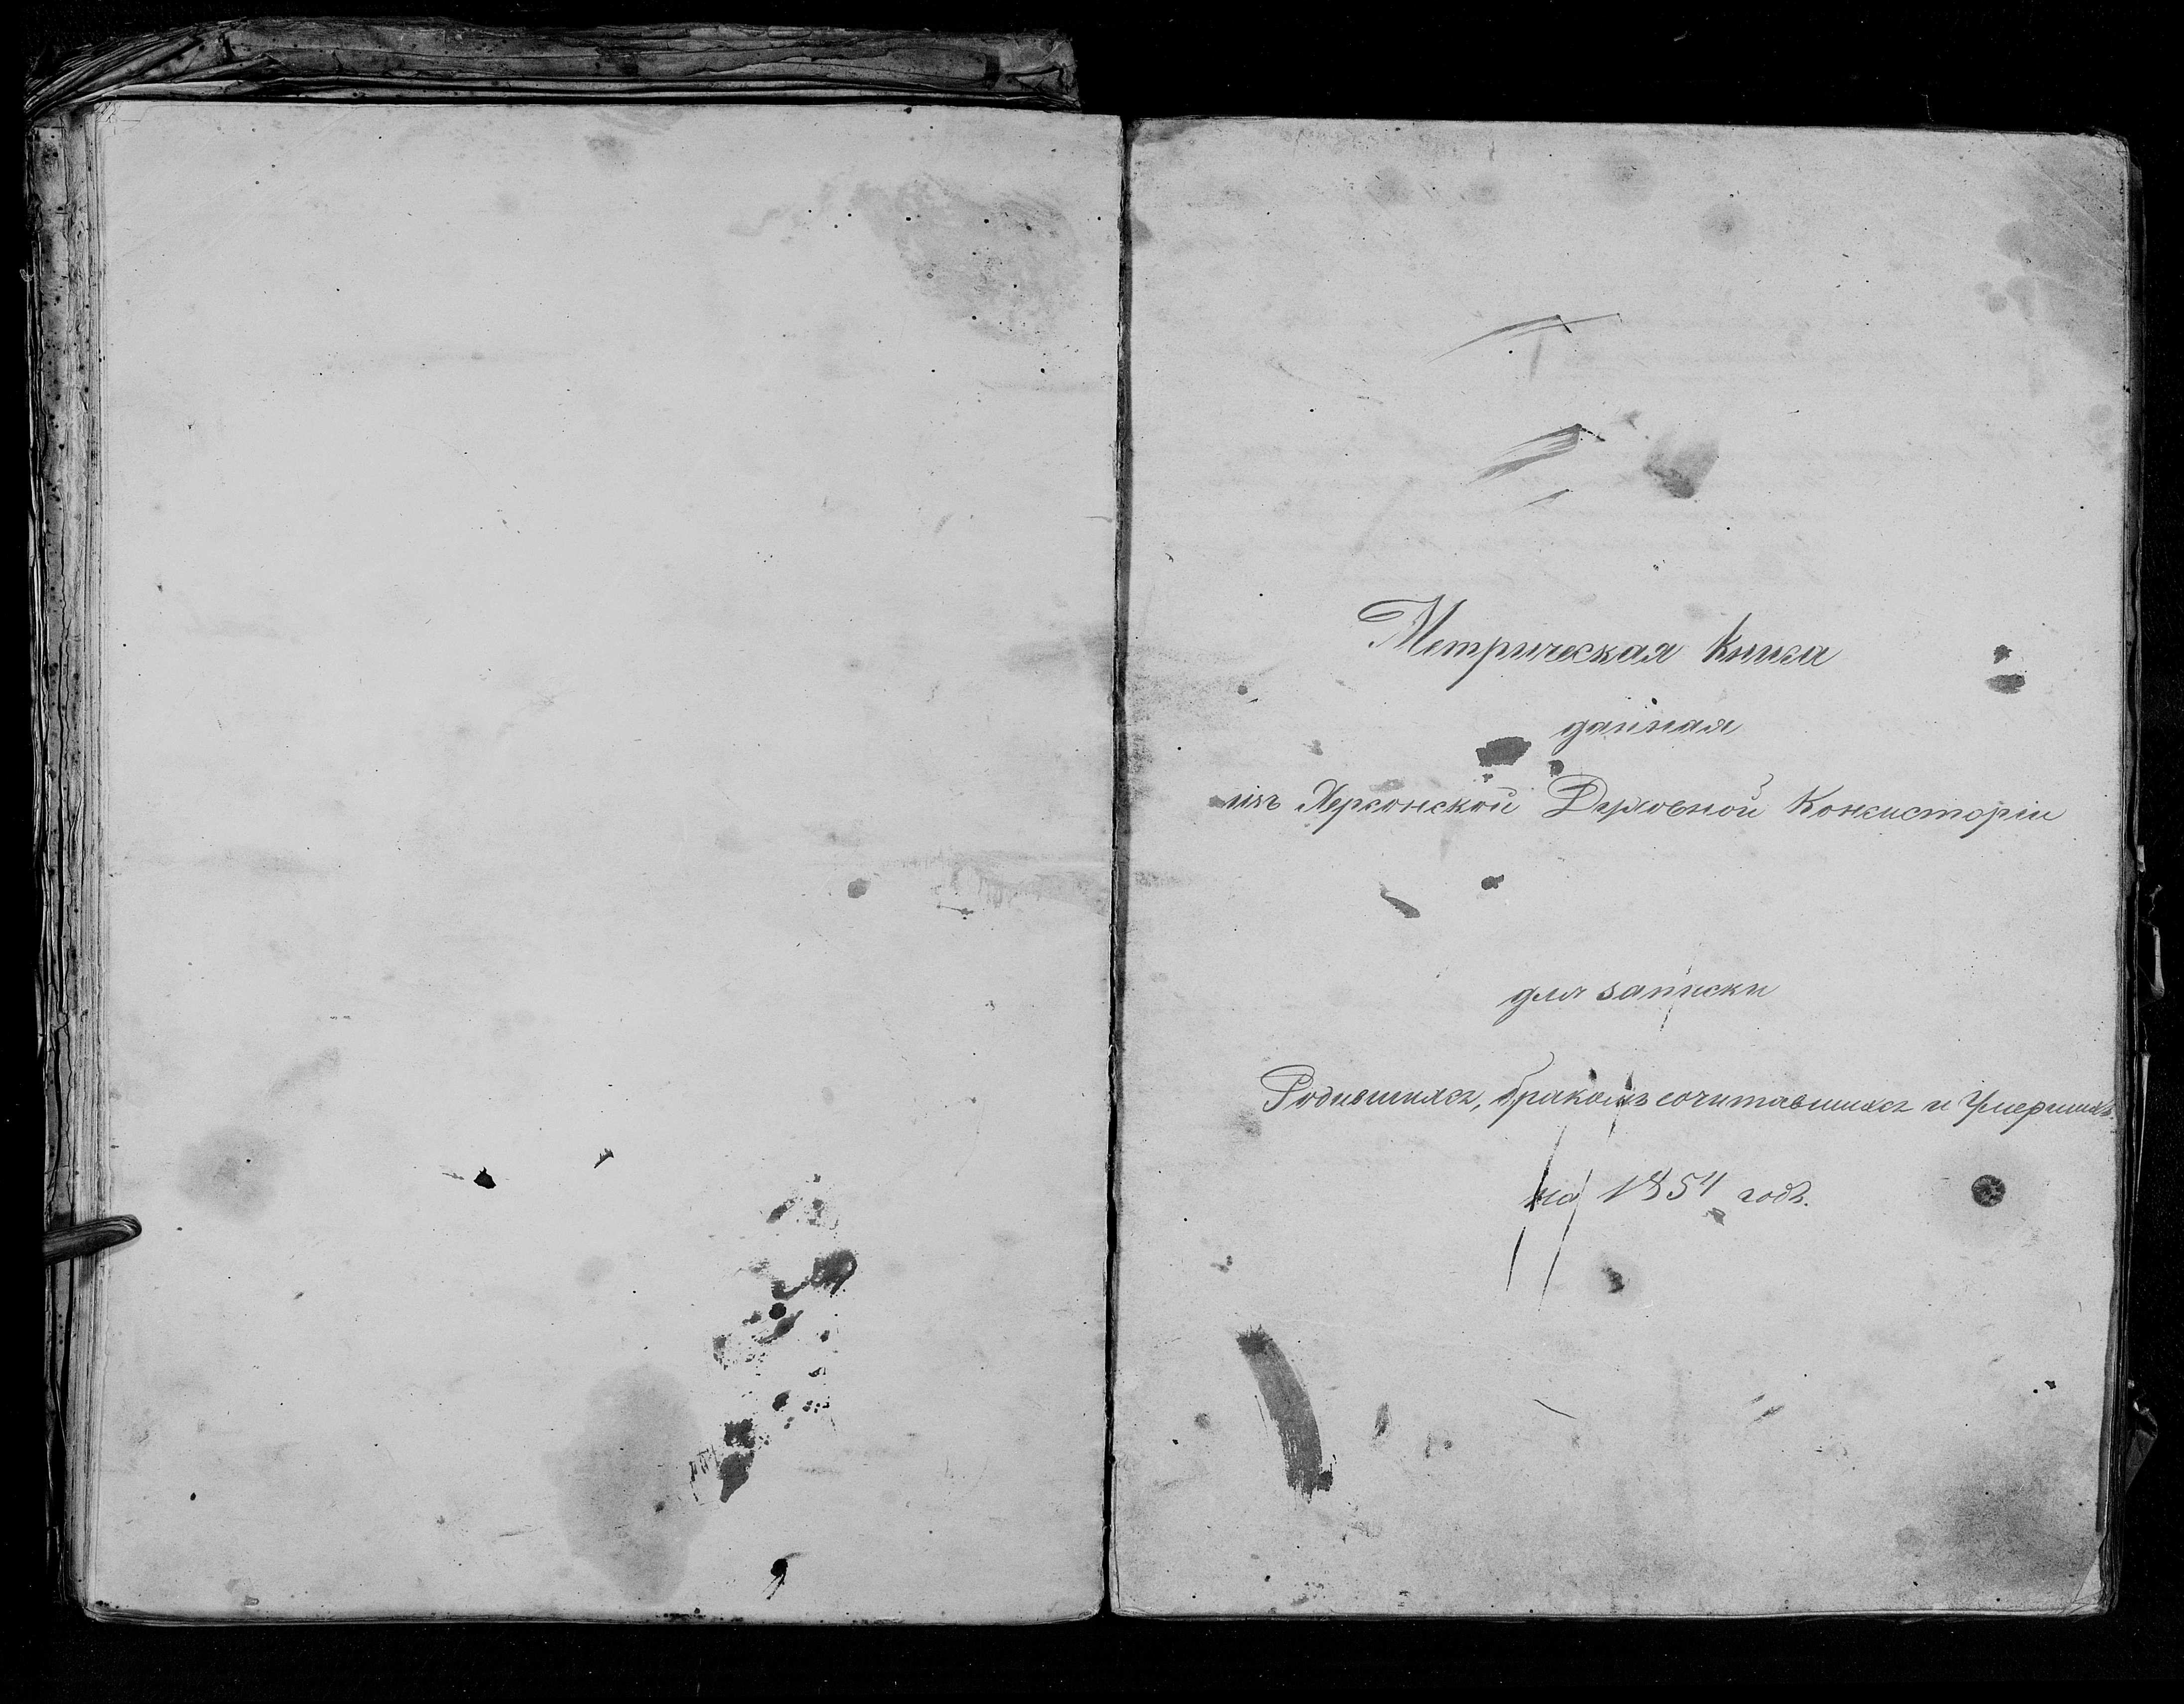 Метрическая Книга
данная
изъ Херсонской Духовной Консисторіи
для записки
Родившихся, бракомъ сочитавшихся и Умершихъ
на 1854 годъ.